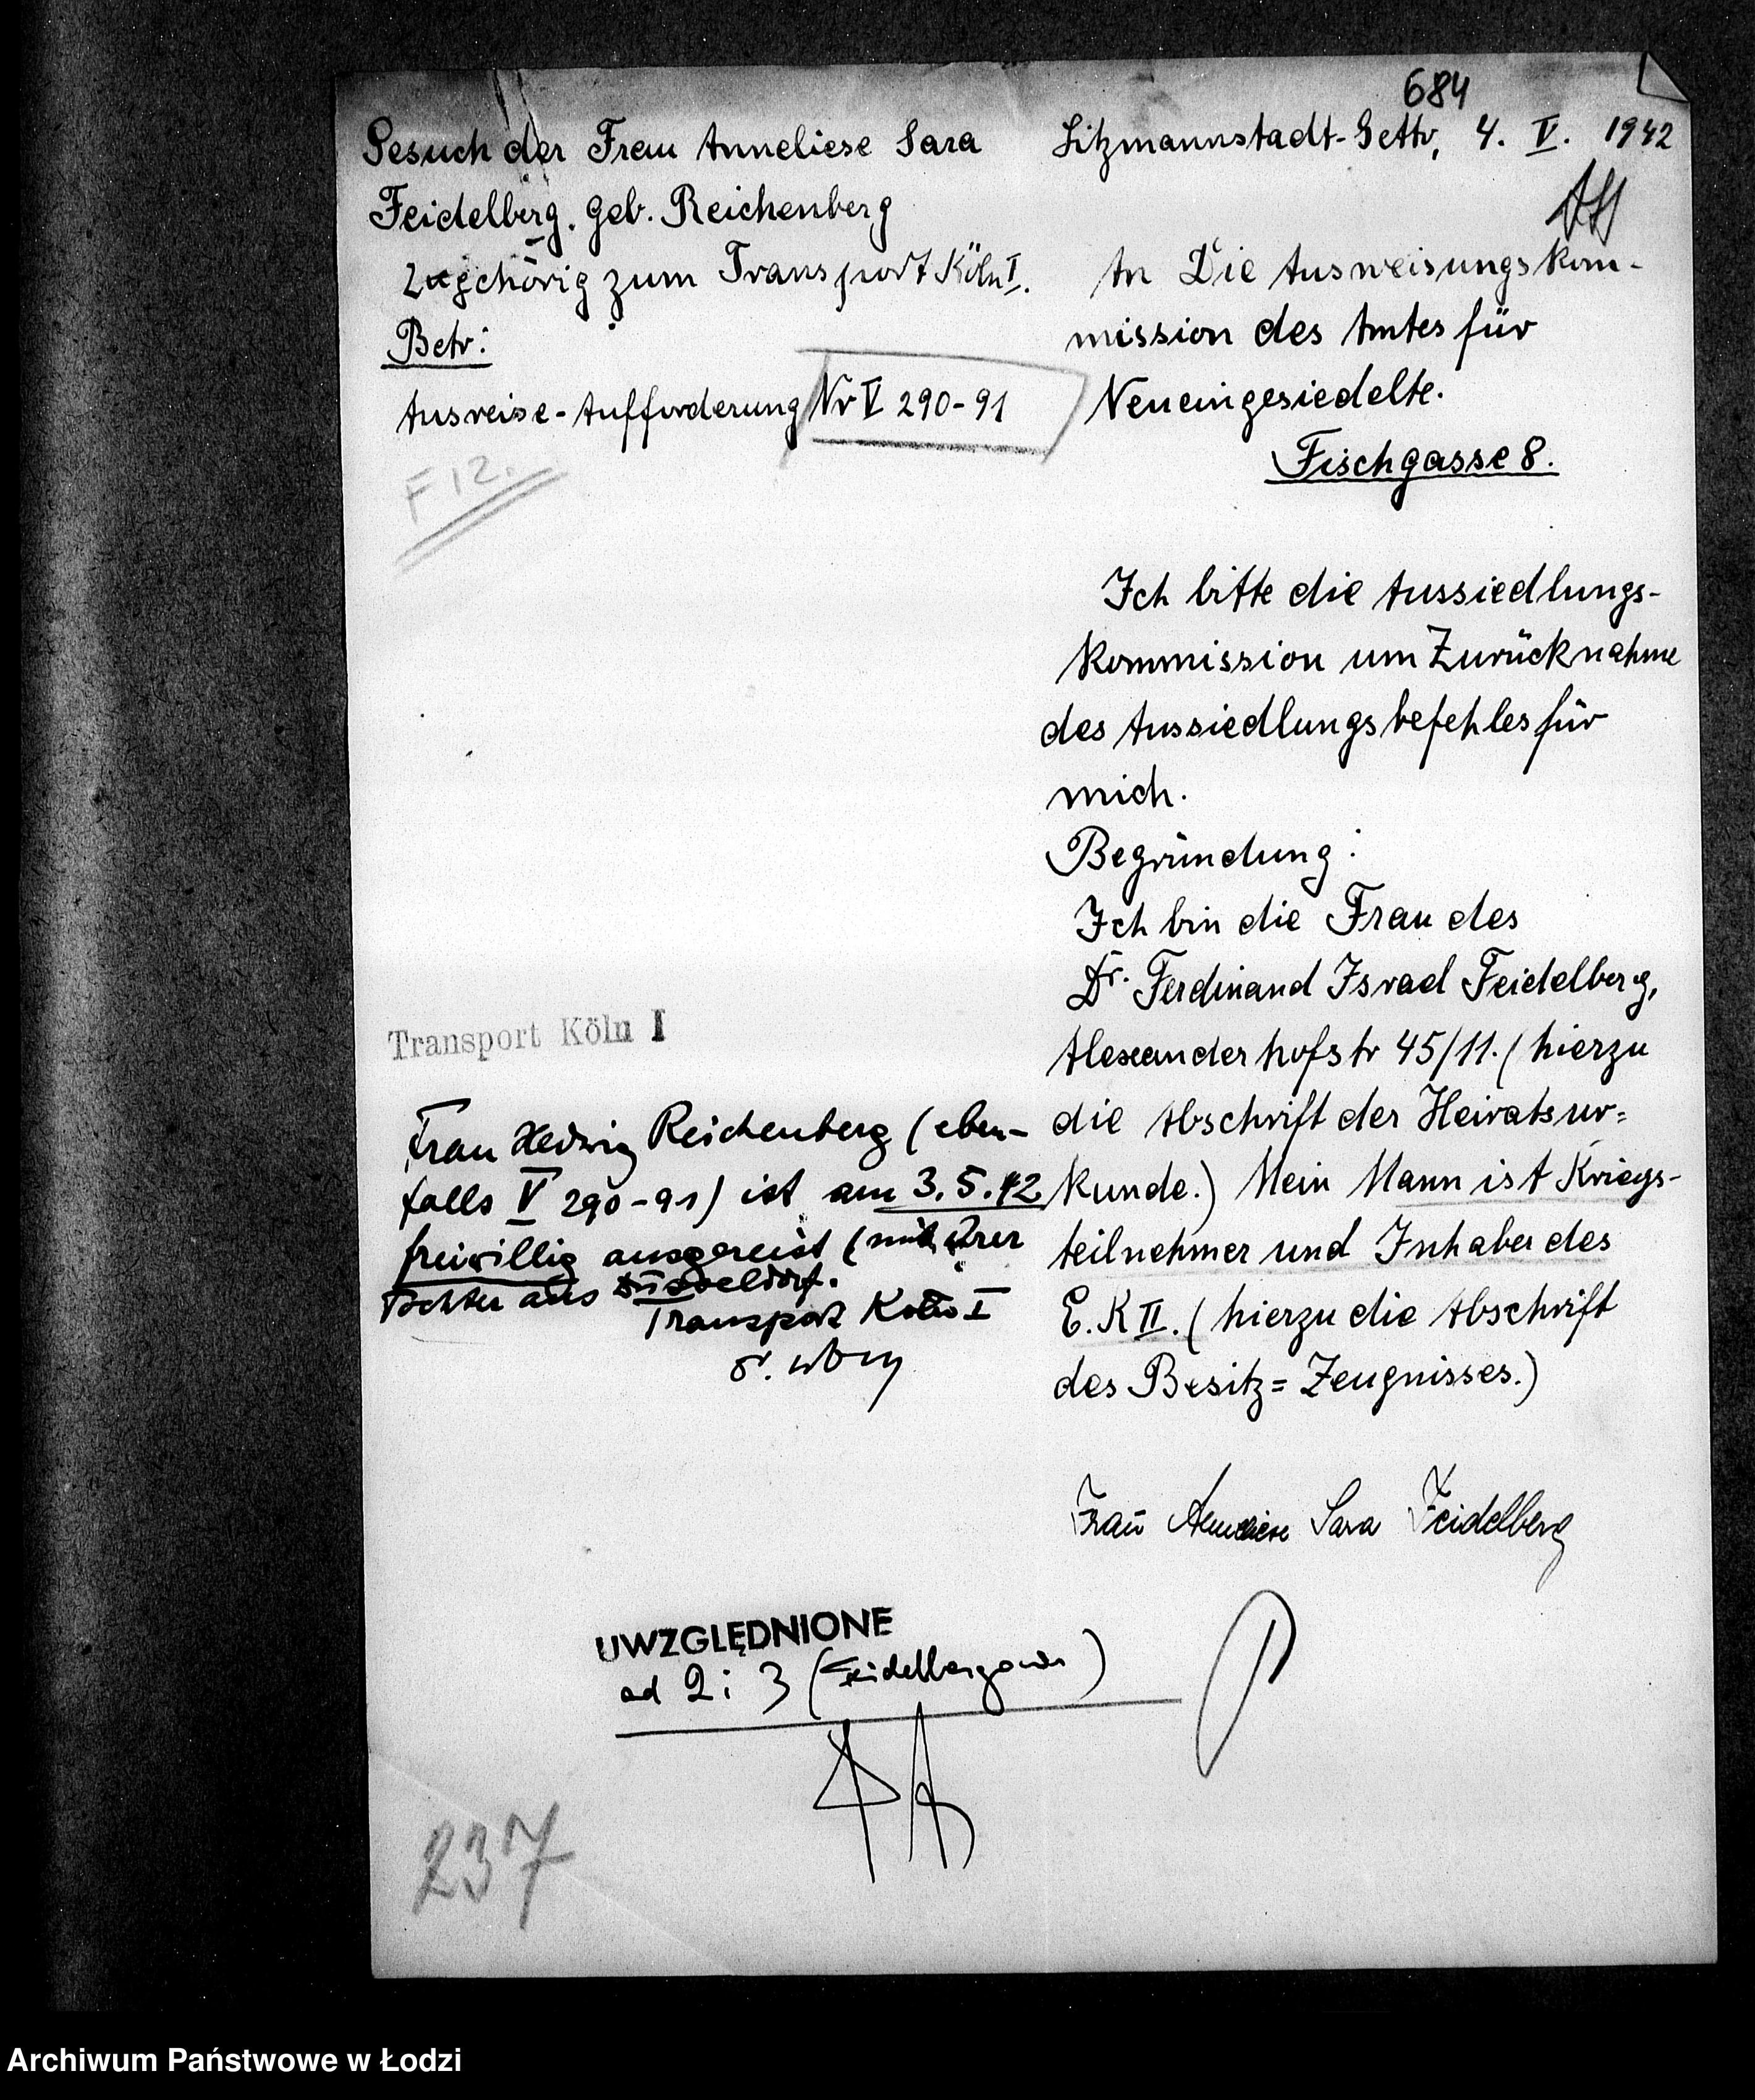 684
Gesuch der Frau Anneliese Sara
Feidelberg. geb. Reichenberg
zugehörig zum Transport Köln I.
Betr:
Ausreise-Aufforderung Nr V 290-91
F 12.
Litzmannstadt-Getto, 4. V. 1942
An Die Ausweisungskom-
mission des Amtes für
Neueingesiedelte.
Fischgasse 8.
Ich bitte die Aussiedlungs-
kommission um Zurücknahme
des Aussiedlungsbefehles für
mich.
Begründung:
Ich bin die Frau des
Dr. Ferdinand Israel Feidelberg,
Alexanderhofstr 45/11. (hierzu
die Abschrift der Heiratsur=
kunde.) Mein Mann ist Kriegs-
teilnehmer und Inhaber des
E. K II. (hierzu die Abschrift
des Besitz=Zeugnisses.)
Frau Anneliese Sara Feidelberg
Transport Köln I
Frau Hedwig Reichenberg (eben-
falls V 290-91) ist am 3.5.42
freiwillig ausgereist (mit ihrer
Tochter aus Düsseldorf.
Transport Köln I
UWZGLĘDNIONE
ad 2 i 3 (Feidelbergowa)
237
Archiwum Państwowe w Łodzi